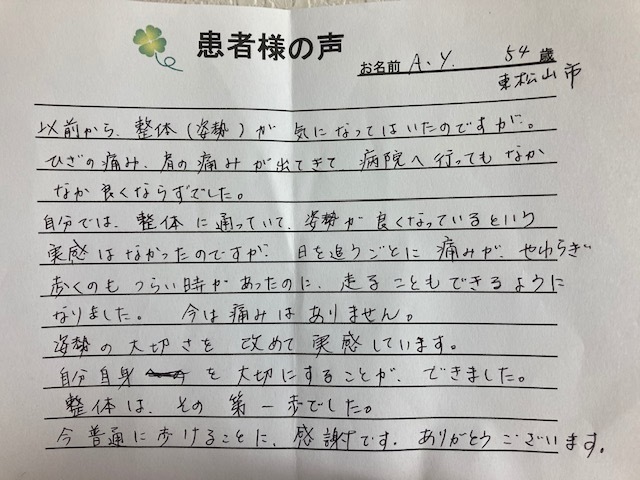 患者様の声
お名前 A.Y. 54 歳
東松山市
以前から、整体(姿勢)が 気になってはいたのですが。
ひざの痛み、肩の痛みが出てきて 病院へ行ってもなか
なか良くならずでした。
自分では、整体に通っていて、姿勢が良くなっているという
実感はなかったのですが、日を追うごとに痛みが、やわらぎ
歩くのもつらい時があったのに、走ることもできるように
なりました。 今は痛みはありません。
姿勢の大切さを 改めて実感しています。
自分自身 を大切にすることが、できました。
整体は、その第一歩でした。
今普通に歩けることに、感謝です。ありがとうございます。